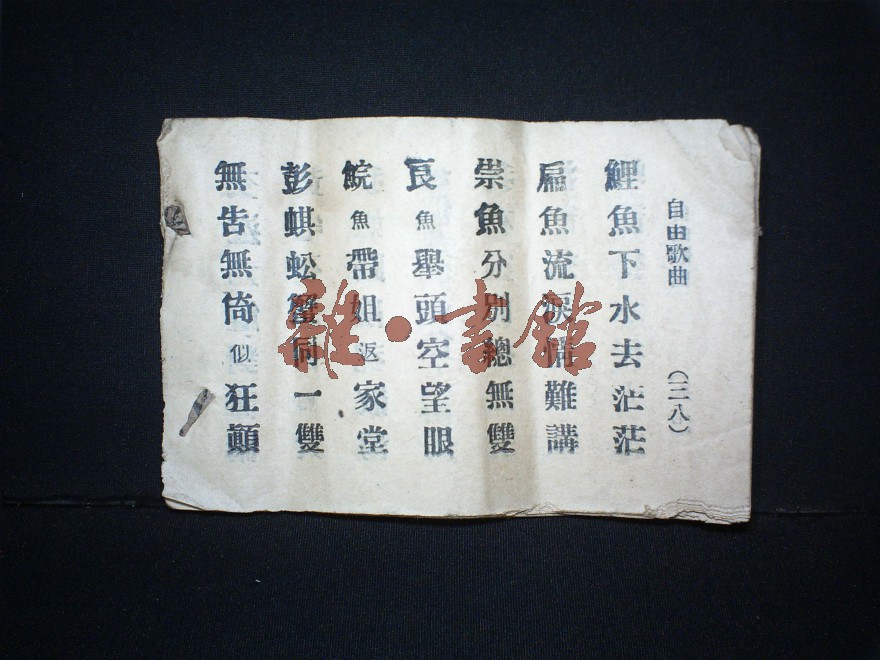 自由歌曲 （三八）
鯉魚下水去茫茫
扁魚流淚情難講
崇魚分別總無雙
良魚舉頭空望眼
鯇魚帶姐返家堂
彭蜞蚣蟹同一雙
無告無倚似狂顛
雜·書館